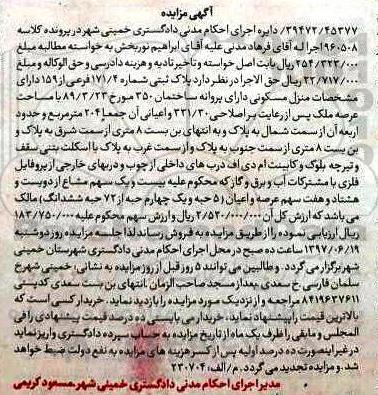 آگهی مزایده
۳۹۴۷۲/۴۵۳۷۷/ دایره اجرای احکام مدنی دادگستری خمینی شهر در پرونده کلاسه
۹۶۰۵۰۸ اجرا له آقای فرهاد مدنی علیه آقای ابراهیم نوربخش به خواسته مطالبه مبلغ
۲۵۴/۳۲۳/۰۰۰ ریال بابت اصل خواسته و تاخیر تادیه و هزینه دادرسی و حق الوکاله و مبلغ
۲۲/۷۱۷/۰۰۰ ریال حق الاجرا در نظر دارد پلاک ثبتی شماره ۱۷۱/۴ فرعی از ۱۵۹ دارای
مشخصات منزل مسکونی دارای پروانه ساختمان ۳۵۰ مورخ ۸۹/۳/۲۳ با مساحت
عرصه ملک پس از رعایت بر اصلاحی ۳۳۱/۲۰ و اعیانی آن جمعا ۲۰۴ مترمربع و حدود
اربعه آن از سمت شمال به پلاک و به انتهای بن بست ۸ متری از سمت شرق به پلاک و
بن بست ۸ متری از سمت جنوب به پلاک و از سمت غرب به پلاک با اسکلت بتنی سقف
و تیرچه بلوک و کابینت ام دی اف درب های داخلی از چوب و دربهای خارجی از پروفایل
فلزی با مشترکات آب و برق و گاز که محکوم علیه بیست و یک سهم مشاع از دویست و
هشتاد و هفت سهم عرصه و اعیان (۵ حبه و یک چهارم حبه از ۷۲ حبه ششدانگ) مالک
می باشد که ارزش کل آن ۲/۵۲۰/۰۰۰/۰۰۰ ریال و ارزش سهم محکوم علیه ۱۸۳/۷۵۰/۰۰۰
ریال ارزیابی نموده را از طریق مزایده به فروش رساند لذا جلسه مزایده روز دوشنبه
۱۳۹۷/۰۶/۱۹ ساعت ده صبح در محل اجرای احکام مدنی دادگستری شهرستان خمینی
شهر برگزار می گردد. و طالبین می توانند ۵ روز قبل از روز مزایده به نشانی: خمینی شهر خ
سلمان فارسی خ سعدی بعد از مسجد صاحب الزمان انتهای بن بست سعدی کدپستی
۸۴۱۹۶۳۷۶۱۱ مراجعه و از نزدیک مورد مزایده را بازدید نماید. خریدار کسی است که
بالاترین قیمت را پیشنهاد نماید، خریدار می بایستی ده درصد قیمت پیشنهادی را فی
المجلس و مابقی را ظرف یک ماه از تاریخ مزایده به حساب سپرده دادگستری واریز نماید
در غیر اینصورت ده درصد اولیه پس از کسر هزینه های مزایده به نفع دولت ضبط خواهد
شد. و مزایده تجدید می گردد. م/الف: ۲۳۰۷۰۴
مدیر اجرای احکام مدنی دادگستری خمینی شهر_مسعود کریمی